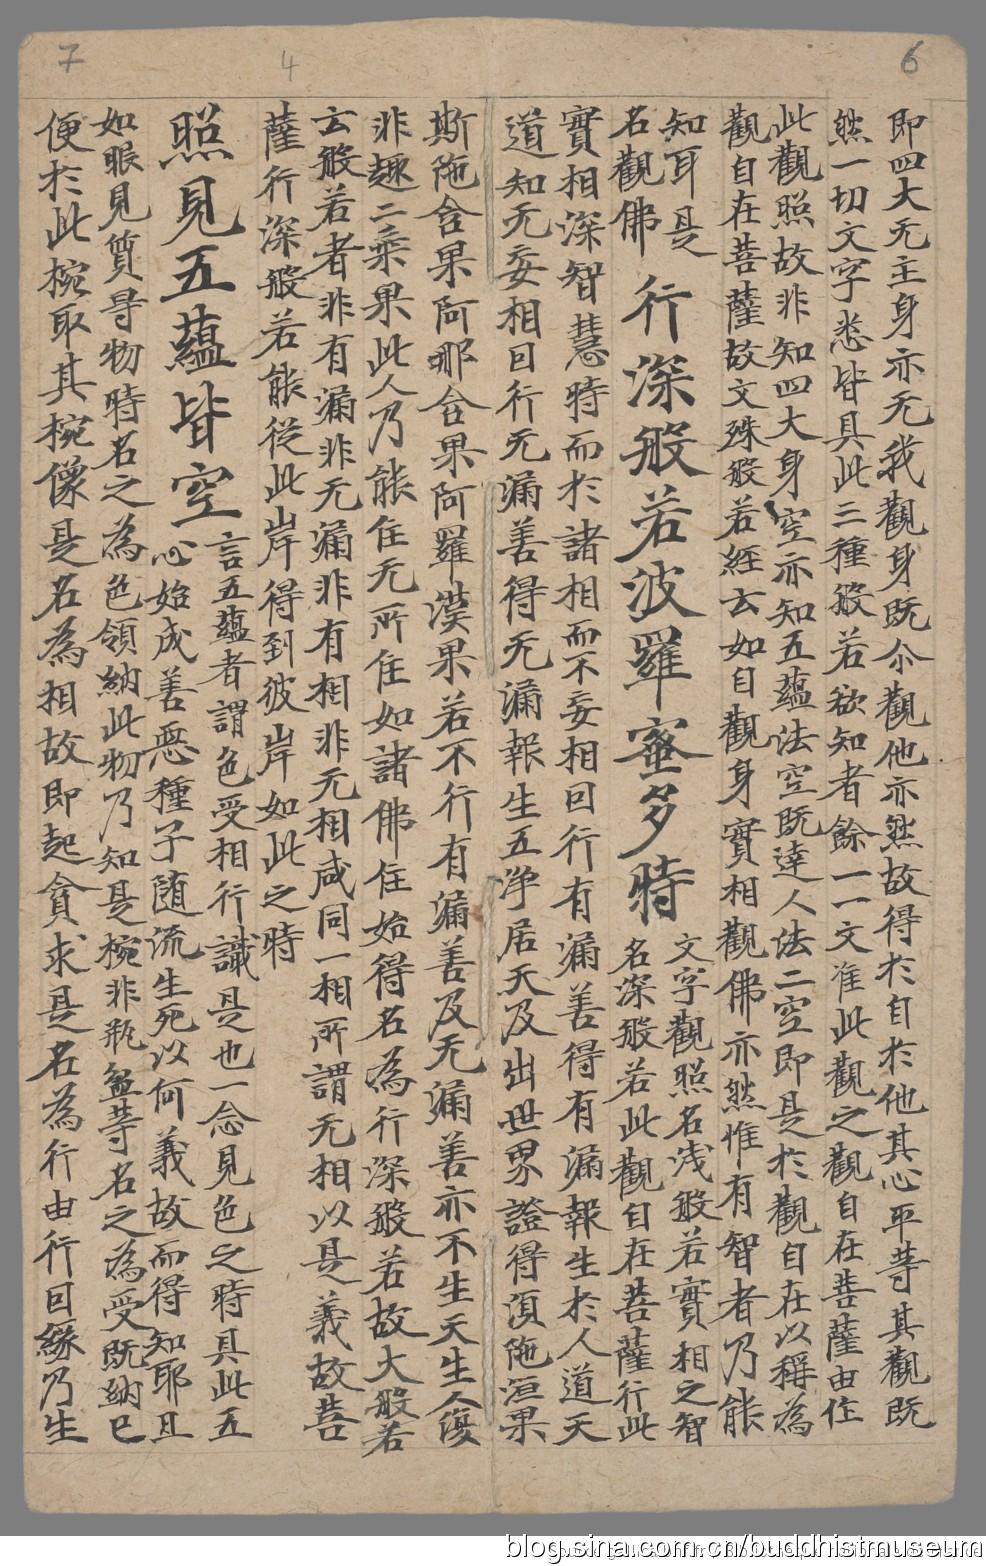 7
4
6
即四大无主身亦无我觀身既尒觀他亦然故得於自於他其心平等其觀既
然一切文字悉皆具此三種般若欲知者餘一一文准此觀之觀自在菩薩由住
此觀照故非知四大身空亦知五蘊法空既達人法二空即是於觀自在以稱為
觀自在菩薩故文殊般若經云如自觀身實相觀佛亦然惟有智者乃能
知耳是
名觀佛
行深般若波羅蜜多時
文字觀照名浅般若實相之智
名深般若此觀自在菩薩行此
實相深智慧時而於諸相而不妄相回行有漏善得有漏報生於人道天
道知无妄相回行无漏善得无漏報生五淨居天及出世界證得須陁洹果
斯陁含果阿那含果阿羅漢果若不行有漏善及无漏善亦不生天生人復
非趣二乘果此人乃能住无所住如諸佛住始得名為行深般若故大般若
云般若者非有漏非无漏非有相非无相咸同一相所謂无相以是義故菩
薩行深般若能從此岸得到彼岸如此之時
照見五蘊皆空
言五蘊者謂色受相行識是也一念見色之時具此五
心始成善惡種子随流生死以何義故而得知耶且
如眼見質导物時名之為色領納此物乃知是椀非瓶盆等名之為受既納已
便於此椀取其椀像是名為相故即起貪求是名為行由行回緣乃生
blog.sina.com.cn/buddhistmuseum